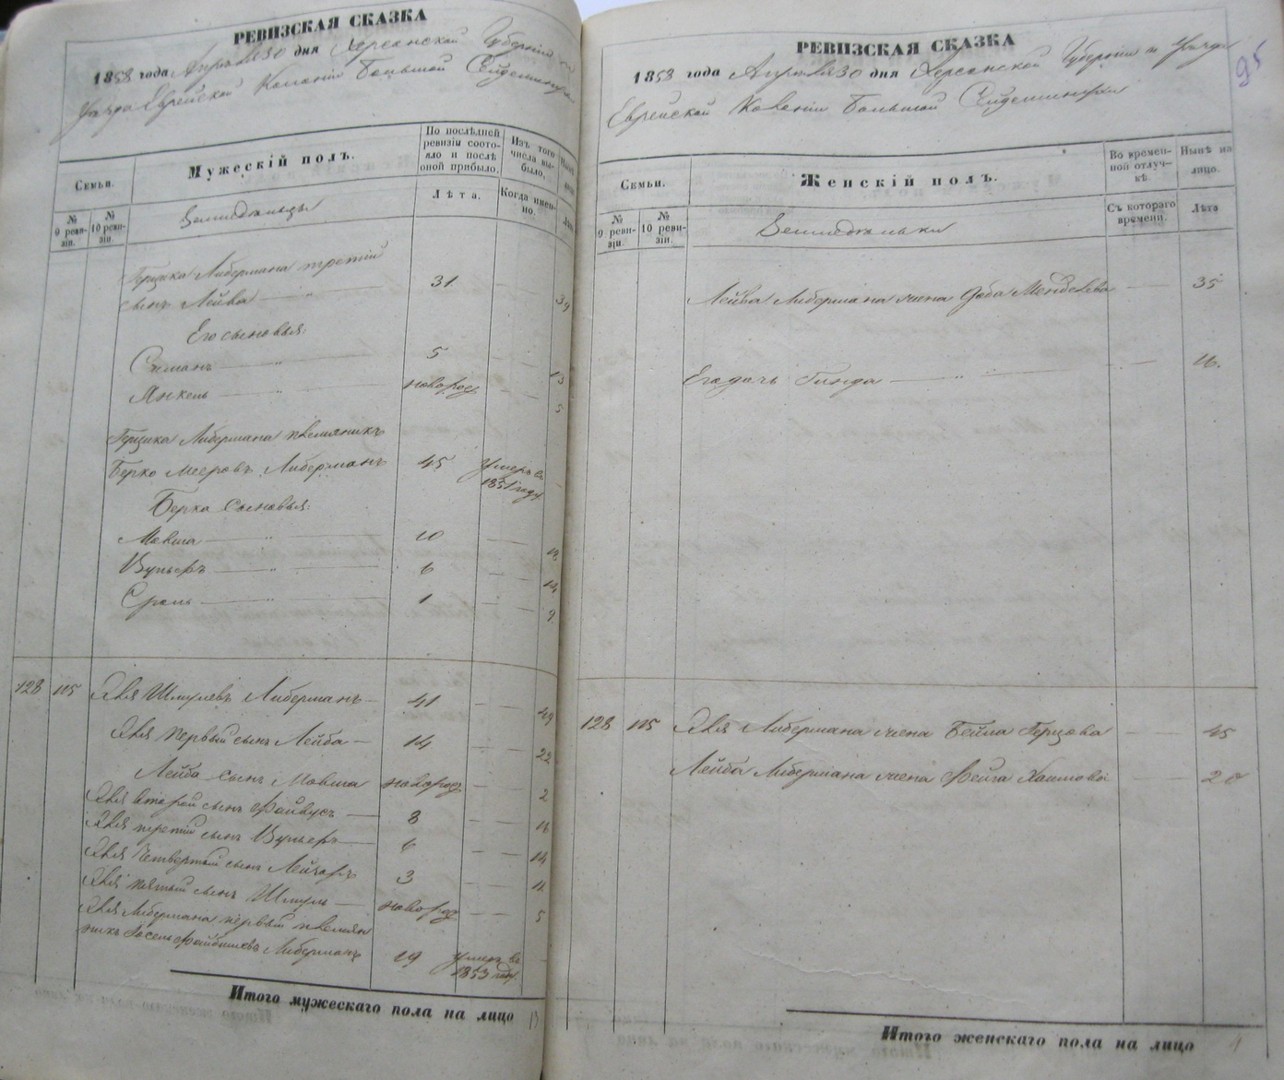 РЕВИЗСКАЯ СКАЗКА
1858 года Апреля 30 дня Херсонской Губернии и
Уезда Еврейской Колонии Большой Сейдеминухи
Семьи.
Мужескій полъ.
По послѣдней ревизіи состояло и послѣ оной прибыло.
Изъ того числа выбыло.
№ 9 ревизіи.
№ 10 ревизіи.
Лѣта.
Когда именно.
Земледельцы
Герцка Либермана третий
сынъ Лейба — „ — 31 — — 39
Его сыновья:
Симанъ — „ — 5 — — 13
Янкель — „ — новорож — — 5
Герцка Либермана племянникъ
Берко Мееровъ Либерманъ 45 Умеръ въ 1851 году —
Берка сыновья:
Мовша — „ — 10 — — 18
Вульфъ — „ — 6 — — 14
Сроль — „ — 1 — — 9
128 115 Шмулевъ Либерманъ — 41 — — 49
первый сынъ Лейба — 14 — — 22
Лейба сынъ Мовша новорож — — 2
второй сынъ Файвусъ — 8 — — 16
третий сынъ Вульфъ — 6 — — 14
четвертый сынъ Лейзоръ 3 — — 11
пятый сынъ Шмуль — новорож — — 5
Либермана первый племян
никъ Либерманъ 19 умеръ въ 1853 году —
Итого мужескаго пола на лицо 13
РЕВИЗСКАЯ СКАЗКА
95
1858 года Апреля 30 дня Херсонской Губернии и Уезда
Еврейской Колонии Большой Сейдеминухи
Семьи.
Женскій полъ.
Во временной отлучкѣ.
Нынѣ на лицо.
№ 9 ревизіи.
№ 10 ревизіи.
Съ котораго времени.
Лѣта
Земледельки
Лейба Либермана жена Доба Менделева — — 35
Его дочь Гинда — „ — „ — — 16.
128 115 Либермана жена Бейла Герцова — — 45
Лейбы Либермана жена Фейга Хаимова — — 20
Итого женскаго пола на лицо 4